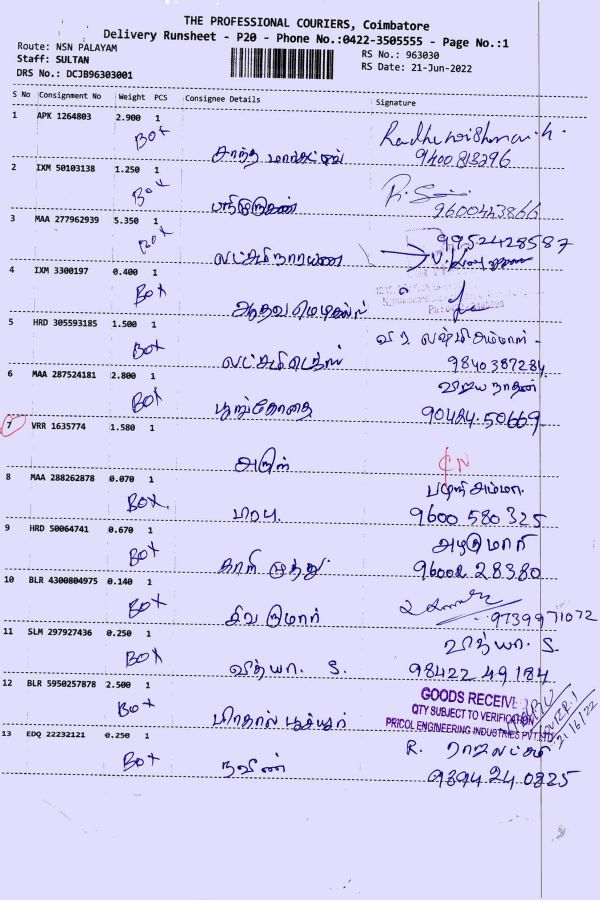 THE PROFESSIONAL COURIERS, Coimbatore
Delivery Runsheet - P20 - Phone No.:0422-3505555 - Page No.:1
Route: NSN PALAYAM
RS No.: 963030
Staff: SULTAN
RS Date: 21-Jun-2022
DRS No.: DCJB96303001
S No Consignment No Weight PCS Consignee Details Signature
1 APK 1264803 2.900 1
Box
9400813296
2 IXM 50103138 1.250 1
Box
9600443866
3 MAA 277962939 5.350 1
9952428587
Box லட்சுமி நாராயணன்
4 IXM 3300197 0.400 1
Box
5 HRD 305593185 1.500 1
Box
9840387284
6 MAA 287524181 2.800 1
விஜய நாதன்
Box பூங்கோதை 90424.50669
7 VRR 1635774 1.580 1
CN
8 MAA 288262878 0.070 1
பழனி அம்மா
Box பரபு. 9600 580 325
9 HRD 50064741 0.670 1
அழகு மாரி
Box காளி முத்து 96002 28380
10 BLR 4300804975 0.140 1
Box சிவ குமார் 9739971072
11 SLM 297927436 0.250 1
வித்யா. S.
Box வித்யா. S. 98422 49184
12 BLR 5950257878 2.500 1
GOODS RECEIVE
QTY SUBJECT TO VERIFICATION
PRICOL ENGINEERING INDUSTRIES PVT.LTD
21/6/22
Box
13 EDQ 22232121 0.250 1
R. ராஜலட்சுமி
Box நவீன் 9394240825